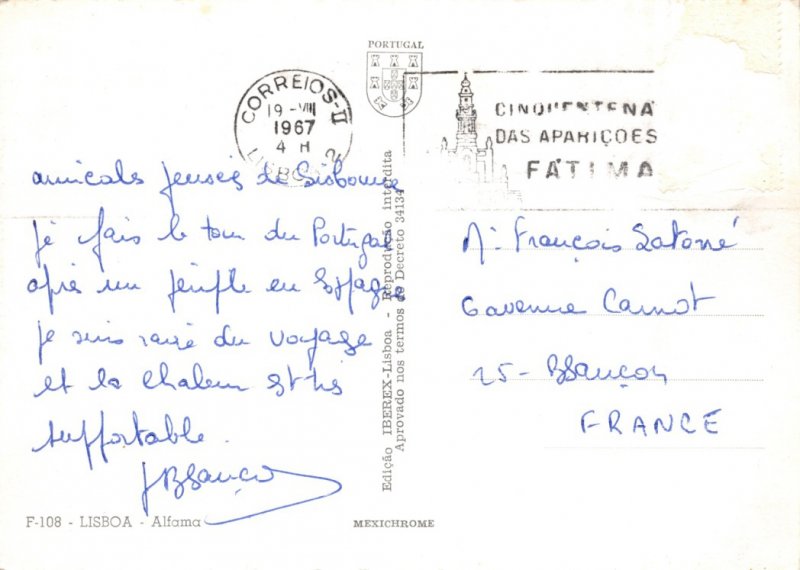 PORTUGAL
CORREIOS-II
19-VIII
1967
4 H
LISBOA 2
CINQUENTENÁ
DAS APARIÇÕES
FÁTIMA
amicales pensées de Lisbonne
je fais le tour du Portugal
après un périple en Espagne
je suis ravi du voyage
et la chaleur est très
supportable.
F-108 - LISBOA - Alfama
Edição IBEREX-Lisboa - Reprodução interdita
Aprovado nos termos do Decreto 34134
MEXICHROME
Mr François
6 avenue Carnot
25 - Besançon
FRANCE